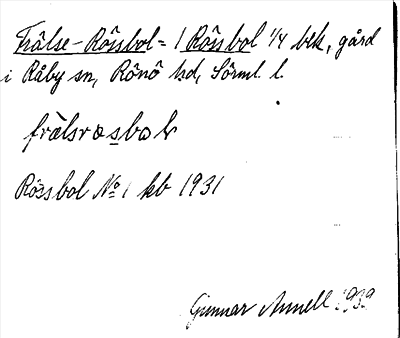 Frälse-Rössbol = 1 Rössbol 1/4 bek, gård
i Råby sn, Rönö hd, Sörml. l.
frälsrɔsbɔl
Rössbol No 1 kb 1931
Gunnar Annell 1939